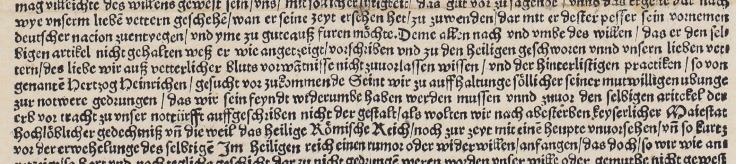 mag villeichte des willens gewest sein/vns/ mit solicher listigkeit/ das gut vor zu sagende/vnnd das ergste dar nach
wye vnserm liebē vettern geschehē/wan er seine zeyt ersehen het/zu zuwenden/dar mit er dester pesser sein vornemen
deutscher nacion zuentgegen/vnd yme zu guteauß furen möchte. Deme allen nach vnd vmbe des willen/ das er den sel⸗
bigen artikel nicht gehalten weß er wie angetzeigt/vorschriben vnd zu den heiligen geschworen vnnd vnsern lieben vet⸗
tern/des liebe wir auß vetterlicher bluts vorwātnisse nicht zuuorlassen wissen/vnd der hinterlistigen practiken/so von
genantē Hertzog Heinrichen/ gesucht vor zukommende Seint wir zu auffhaltunge söllicher seiner mutwilligen ubunge
zur notwere gedrungen/das wir sein feyndt widerumbe haben werden mussen vnnd zuuor den selbigen aritckel der
erb vor tracht zu vnser notürfft auffgeschriben nicht der gestalt/als wolten wir nach absterben keyserlicher Maiestat
hochlöblicher gedechtniß vn̄ die weil das heilige Römische Reich/noch zur zeyt mit einē heupte vnuorsehen/vn̄ so kurtz
vor der erwehelunge des selbige Im heiligen reich einen rumor oder widerwillen/anfangen/das doch/so wir wie an⸗